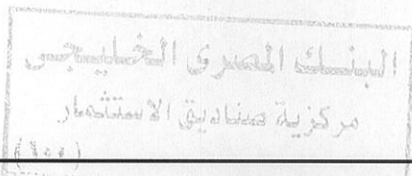 البنك المصرى الخليجى
مركزية صناديق الاستثمار